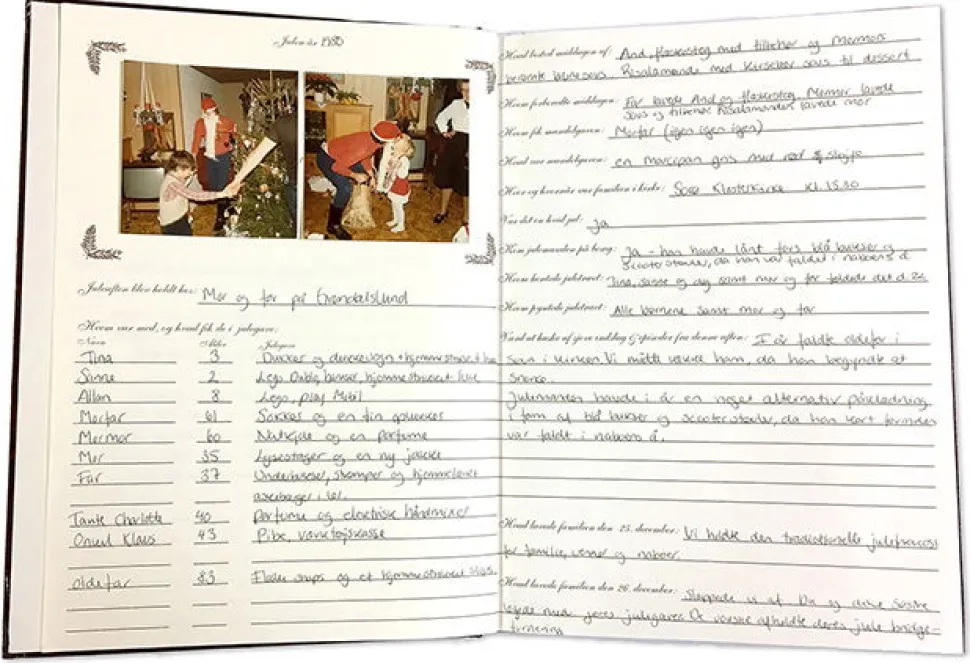 Julen år 1980
Juleaften blev holdt hos: Mor og far på Grøndalslund
Hvem var med, og hvad fik de i julegave:
Navn Alder Julegave
Tina 3 Dukker og dukkevogn + hjemmestrikket
Sanne 2 Lego Duplo, bamser, hjemmestrikket
Allan 8 Lego, play Mobil
Morfar 61 Sokker og en fin
Mormor 60 Natkjole og en parfume
Mor 35 Lysestager og en ny jakke
Far 37 Underbukser, strømper og hjemmelavet
askebæger i ler.
Tante Charlotte 40 Parfume og elektrisk håndmixer
Onkel Klaus 43 Pibe, værktøjskasse
oldefar 83 Flaske snaps og et hjemmestrikket slips.
Hvad bestod middagen af: And, flæskesteg med tilbehør og Mormors
berømte brune sovs. Risalamande med Kirsebær sovs til dessert
Hvem forberedte middagen: Far lavede And og flæskesteg. Mormor lavede
sovs og tilbehør. Risalamanden lavede mor
Hvem fik mandelgaven: Morfar (igen igen igen)
Hvad var mandelgaven: en Marcipan gris med rød sløjfe
Hvor og hvornår var familien i kirke: Sorø Klosterkirke kl. 15.30
Var det en hvid jul: Ja
Kom julemanden på besøg: Ja - han havde lånt fars blå bukser og
Scooterstøvler, da han var faldet i naboens å
Hvem hentede juletræet: Tina, Sanne og dig samt mor og far fældede det d. 22
Hvem pyntede juletræet: Alle børnene samt mor og far
Værd at huske af sjove indslag & episoder fra denne aften: I år faldte oldefar i
søvn i kirken. Vi måtte vække ham, da han begyndte at
snorke.
Julemanden havde i år en noget alternativ påklædning
i form af blå bukser og scooterstøvler, da han kort forinden
var faldt i naboens å.
Hvad lavede familien den 25. december: Vi holdte den traditionelle julefrokost
for familie, venner og naboer.
Hvad lavede familien den 26. december: Slappede vi af. Du og dine søstre
legede med jeres julegaver. De voksne afholdte deres jule bridge-
turnering